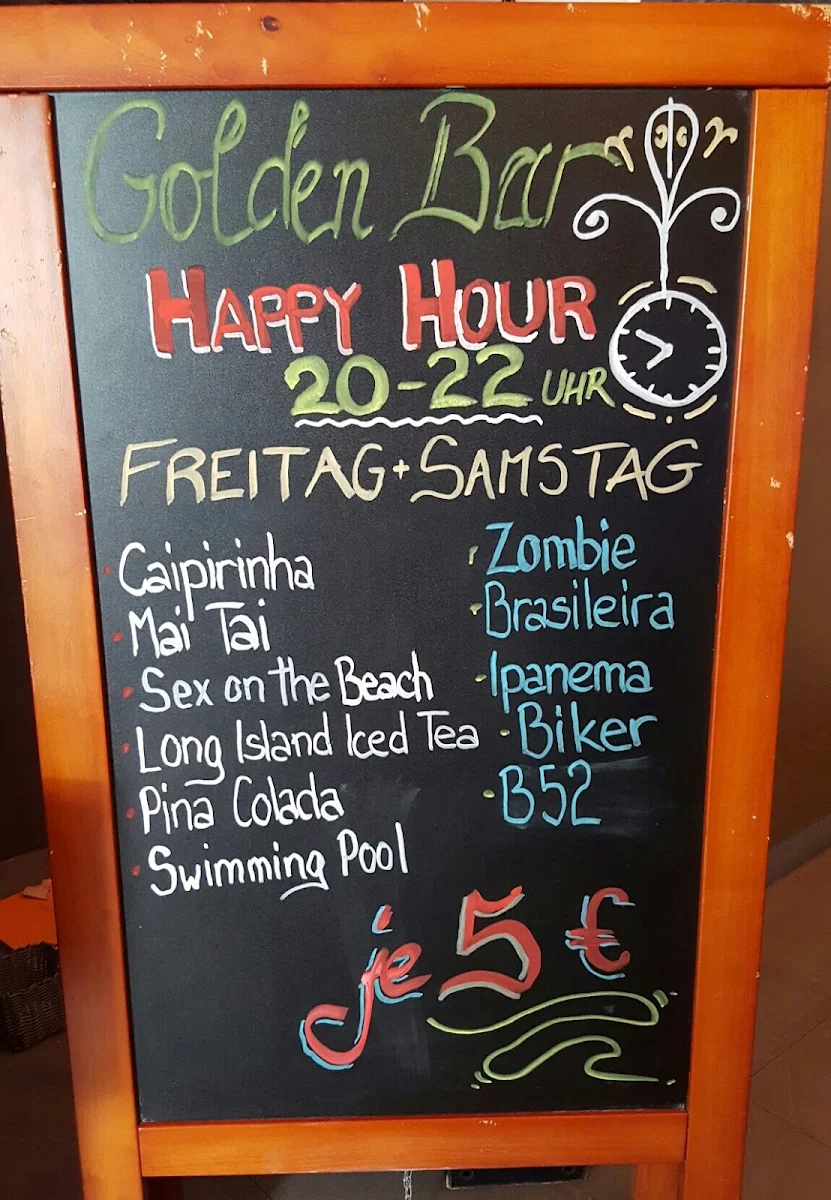 Golden Bar
HAPPY HOUR
20-22 UHR
FREITAG+SAMSTAG
Caipirinha
Mai Tai
Sex on the Beach
Long Island Iced Tea
Pina Colada
Swimming Pool
Zombie
Brasileira
Ipanema
Biker
B52
je 5 €